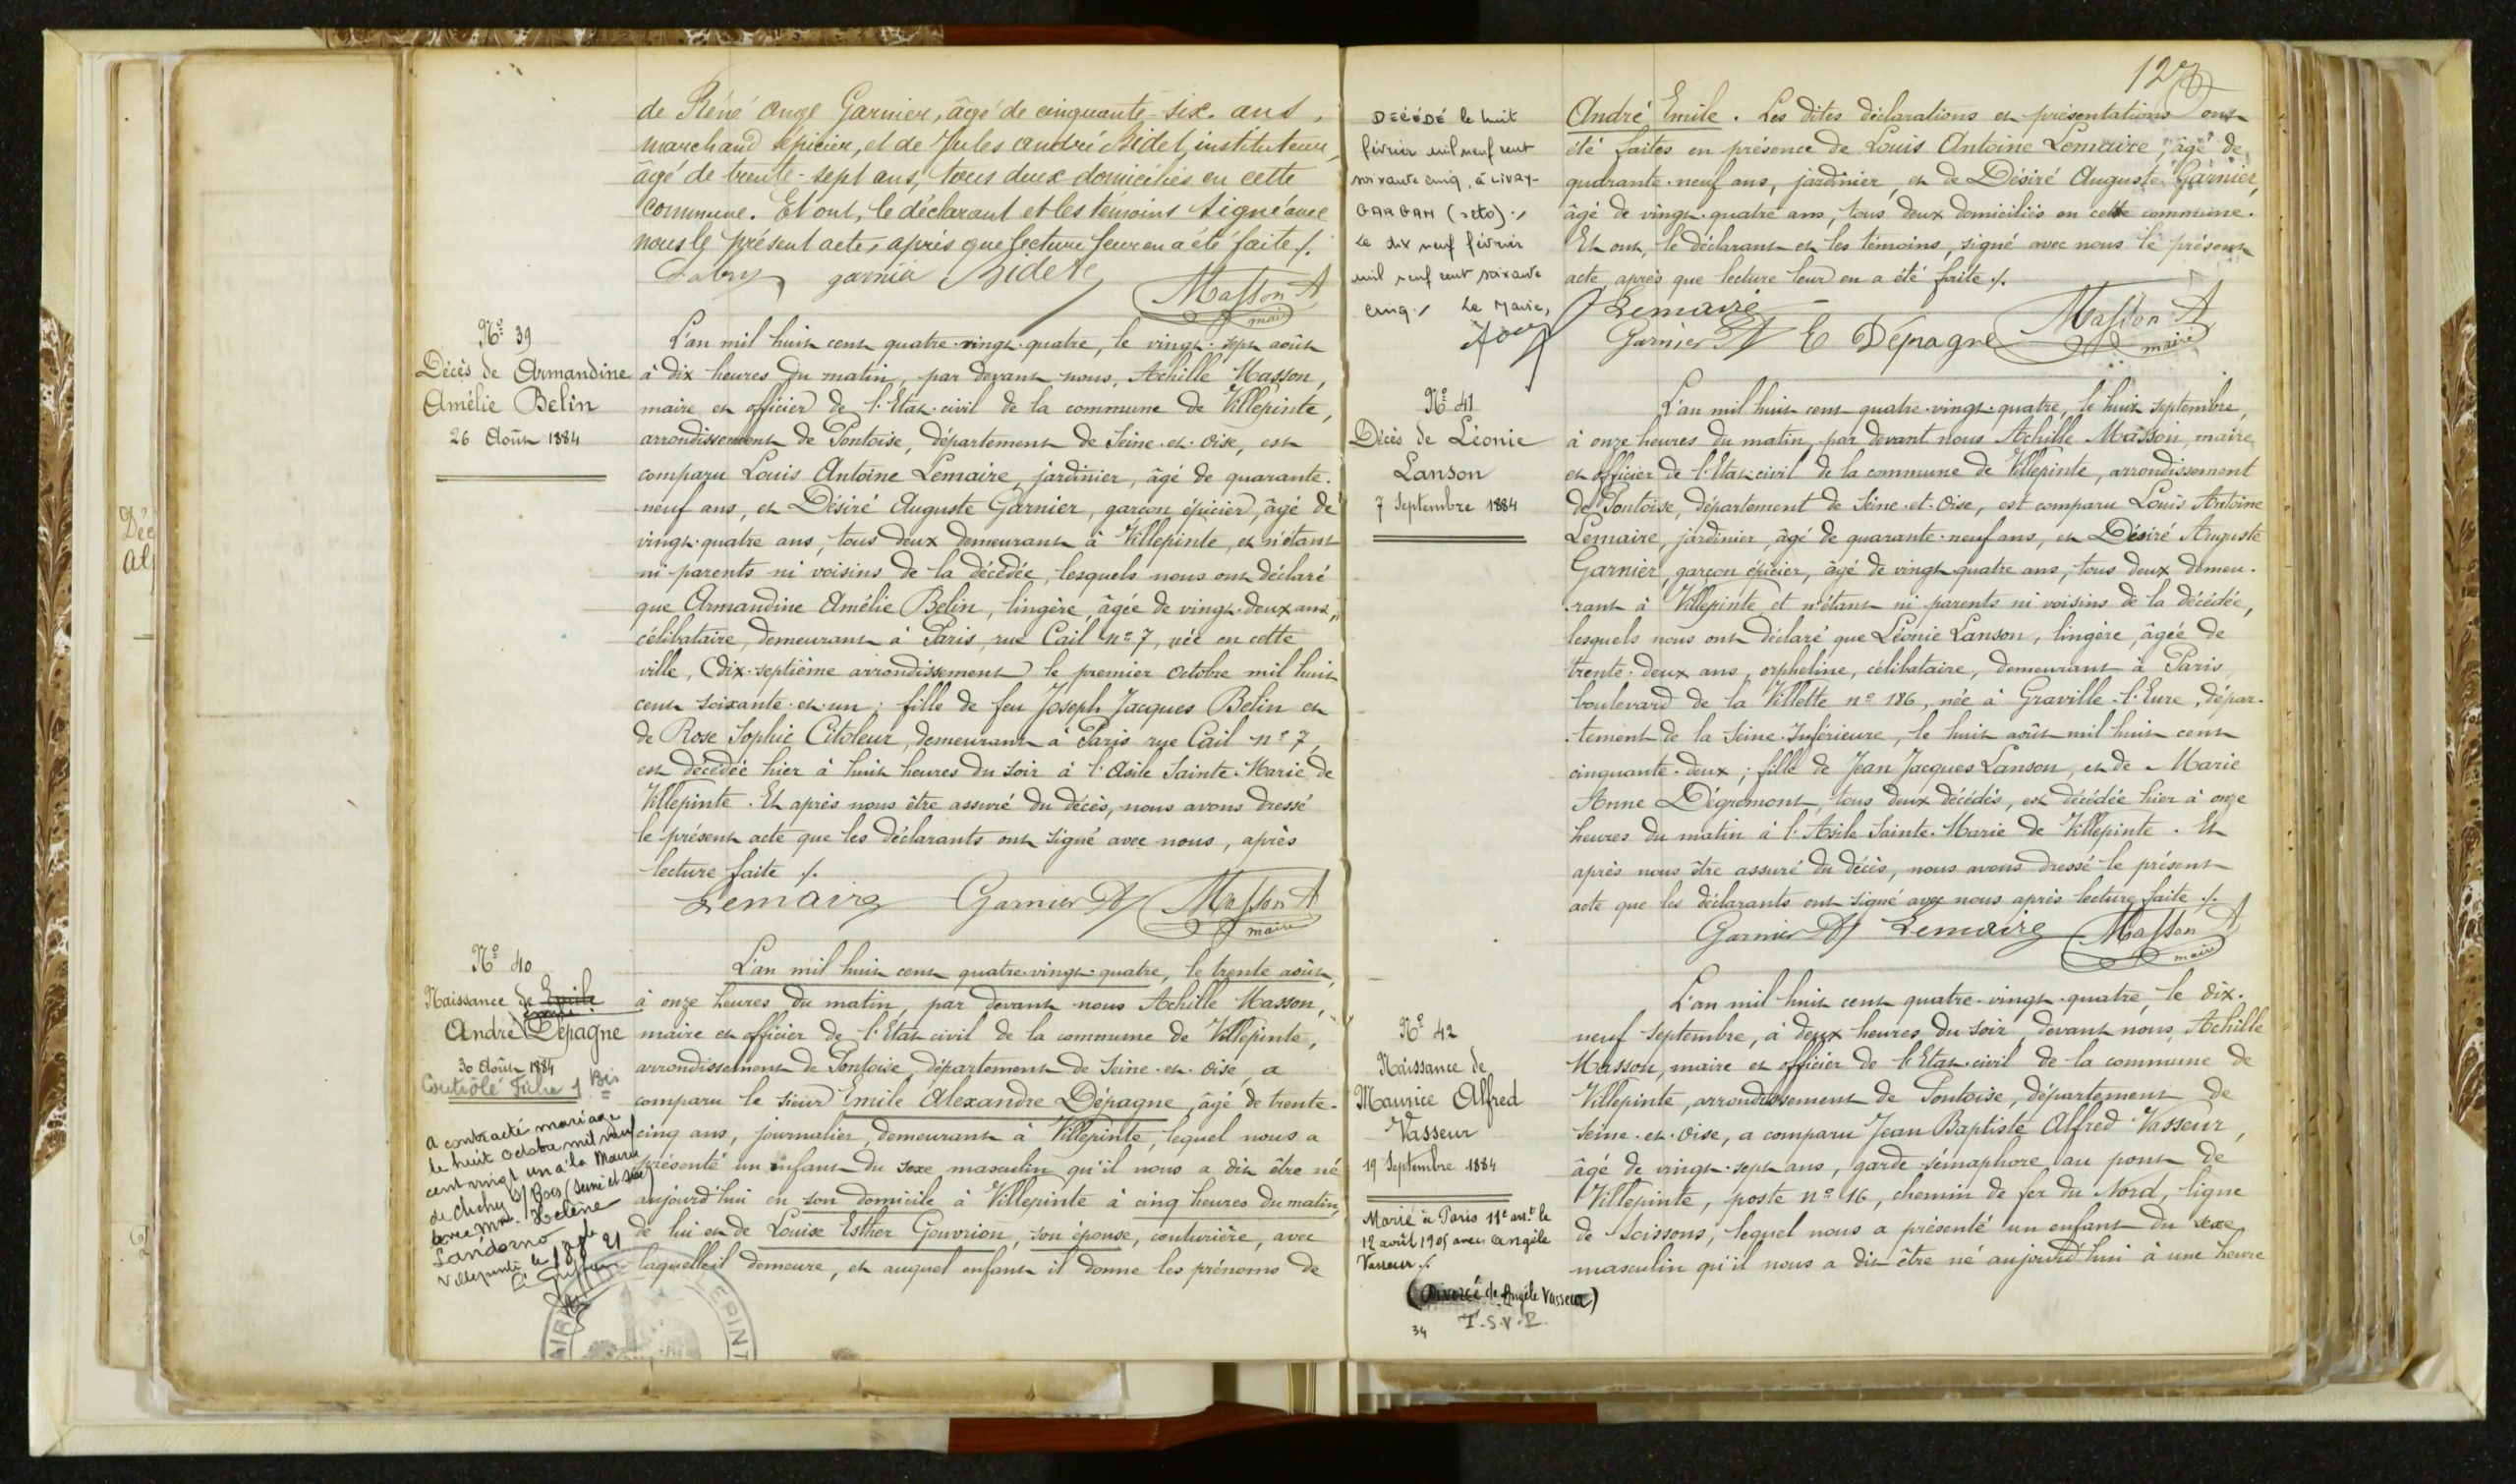 de Réné Ange Garnier, âgé de cinquante-six ans,
marchand épicier, et de Jules andré Bidet, instituteur,
âgé de trente-sept ans, tous deux domiciliés en cette
commune. Et ont, le déclarant et les témoins signé avec
nous le présent acte, après que lecture leur en a été faite ./.
garnier Bidet Masson A
maire
N° 39
Décès de Armandine
Amélie Belin
26 Août 1884
L'an mil huit cent quatre-vingt-quatre, le vingt-sept août
à dix heures du matin, par devant nous, Achille Masson,
maire et officier de l'Etat-civil de la commune de Villepinte,
arrondissement de Pontoise, département de Seine-et-Oise, est
comparu Louis Antoine Lemaire, jardinier, âgé de quarante-
neuf ans, et Désiré Auguste Garnier, garçon épicier, âgé de
vingt-quatre ans, tous deux demeurant à Villepinte, et n'étant
ni parents ni voisins de la décédée, lesquels nous ont déclaré
que Armandine Amélie Belin, lingère, âgée de vingt-deux ans,
célibataire, demeurant à Paris, rue Cail n° 7, née en cette
ville, (dix-septième arrondissement) le premier octobre mil huit
cent soixante-et-un ; fille de feu Joseph Jacques Belin et
de Rose Sophie Citoleur, demeurant à Paris rue Cail n° 7,
est décédée hier à huit heures du soir à l'Asile Sainte-Marie de
Villepinte. Et après nous être assuré du décès, nous avons dressé
le présent acte que les déclarants ont signé avec nous, après
lecture faite ./.
Lemaire Garnier D Masson A
maire
N° 40
Naissance de Emile
André Emile Dépagne
30 Août 1884
Contrôlé Bis
a contracté mariage
le huit octobre mil neuf
cent vingt un à la Mairie
de Clichy s/ Bois (Seine et Oise)
avec Mlle Hélène
Landorno
Villepinte le 21
L'an mil huit cent quatre-vingt-quatre, le trente août,
à onze heures du matin, par devant nous Achille Masson,
maire et officier de l'Etat-civil de la commune de Villepinte,
arrondissement de Pontoise, département de Seine-et-Oise, a
comparu le sieur Emile Alexandre Dépagne, âgé de trente-
cinq ans, journalier, demeurant à Villepinte, lequel nous a
présenté un enfant du sexe masculin qu'il nous a dit être né
aujourd'hui en son domicile à Villepinte à cinq heures du matin,
de lui et de Louise Esther Gouvrion, son épouse, couturière, avec
laquelle il demeure, et auquel enfant il donne les prénoms de
127
DÉCÉDÉ le huit
février mil neuf cent
soixante cinq, à LIVRY-
GARGAN (seto) ./.
Le dix neuf février
mil neuf cent soixante
cinq ./. Le Maire,
André Emile. Les dites déclarations et présentations ont
été faites en présence de Louis Antoine Lemaire, âgé de
quarante-neuf ans, jardinier, et de Désiré Auguste Garnier,
âgé de vingt-quatre ans, tous deux domiciliés en cette commune.
Et ont, le déclarant et les témoins, signé avec nous le présent
acte, après que lecture leur en a été faite ./.
Lemaire
Garnier D E Dépagne Masson A
maire
N° 41
Décès de Léonie
Lanson
7 Septembre 1884
L'an mil huit cent quatre-vingt-quatre, le huit septembre,
à onze heures du matin, par devant nous Achille Masson, maire
et officier de l'Etat-civil de la commune de Villepinte, arrondissement
de Pontoise, département de Seine-et-Oise, est comparu Louis Antoine
Lemaire, jardinier, âgé de quarante-neuf ans, et Désiré Auguste
Garnier, garçon épicier, âgé de vingt-quatre ans, tous deux demeu-
-rant à Villepinte et n'étant ni parents ni voisins de la décédée,
lesquels nous ont déclaré que Léonie Lanson, lingère, âgée de
trente-deux ans, orpheline, célibataire, demeurant à Paris
boulevard de la Villette n° 186, née à Graville-l'Eure, dépar-
-tement de la Seine-Inférieure, le huit août mil huit cent
cinquante-deux ; fille de Jean Jacques Lanson, et de Marie
Anne Dégremont, tous deux décédés, est décédée hier à onze
heures du matin à l'Asile Sainte-Marie de Villepinte. Et
après nous être assuré du décès, nous avons dressé le présent
acte que les déclarants ont signé avec nous après lecture faite ./.
Garnier D Lemaire Masson A
maire
N° 42
Naissance de
Maurice Alfred
Vasseur
19 Septembre 1884
Marié à Paris 11e arrt le
12 août 1905 avec Angèle
Vasseur ./.
(Divorcé de Angèle Vasseur)
T.S.V.P.
34
L'an mil huit cent quatre-vingt-quatre, le dix-
neuf septembre, à deux heures du soir, devant nous, Achille
Masson, maire et officier de l'Etat-civil de la commune de
Villepinte, arrondissement de Pontoise, département de
Seine-et-Oise, a comparu Jean Baptiste Alfred Vasseur,
âgé de vingt-sept ans, garde-sémaphore au pont de
Villepinte, poste n° 16, chemin de fer du Nord, ligne
de Soissons, lequel nous a présenté un enfant du sexe
masculin qu'il nous a dit être né aujourd'hui à une heure